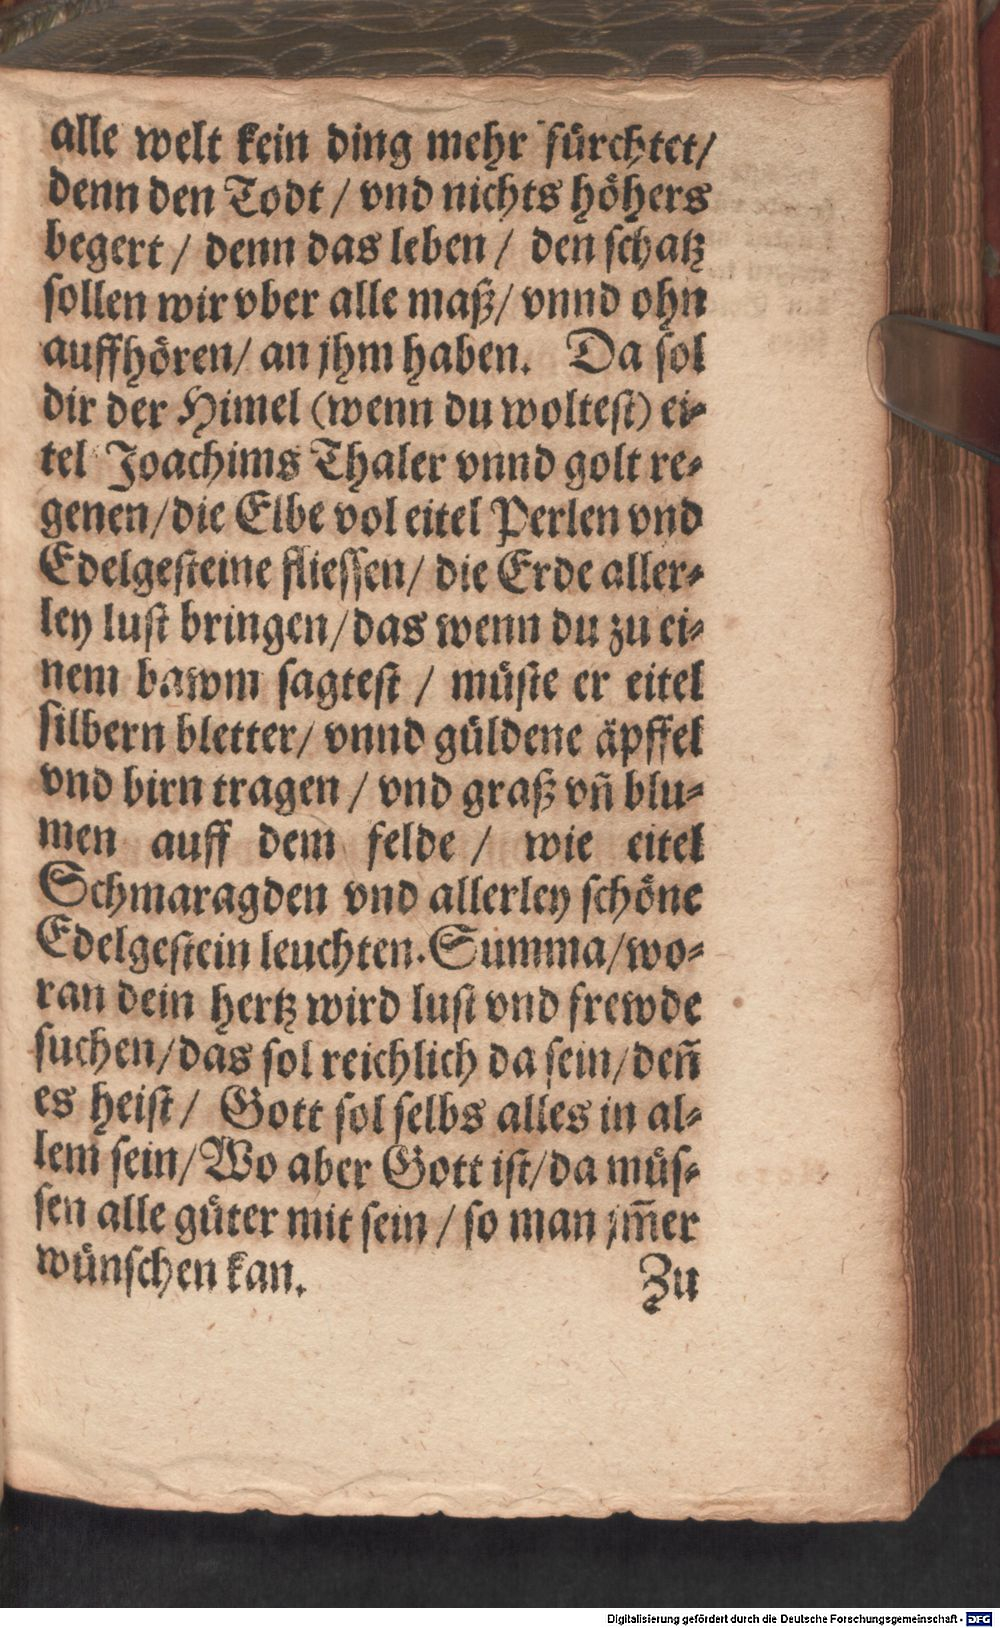 alle welt kein ding mehr fürchtet/
denn den Todt / vnd nichts höhers
begert / denn das leben / den schatz
sollen wir vber alle maß/ vnnd ohn
auffhören/ an jhm haben. Da sol
dir der Himel (wenn du woltest) ei-
tel Joachims Thaler vnnd golt re-
genen/die Elbe vol eitel Perlen vnd
Edelgesteine fliessen/ die Erde aller-
ley lust bringen/das wenn du zu ei-
nem bawm sagtest / müste er eitel
silbern bletter/ vnnd güldene äpffel
vnd birn tragen / vnd graß vñ blu-
men auff dem felde / wie eitel
Schmaragden vnd allerley schöne
Edelgestein leuchten. Summa/wo-
ran dein hertz wird lust vnd frewde
suchen/das sol reichlich da sein/deñ
es heist/ Gott sol selbs alles in al-
lem sein/Wo aber Gott ist/da müs-
sen alle güter mit sein / so man jm̃er
wünschen kan.
Zu
Digitalisierung gefördert durch die Deutsche Forschungsgemeinschaft - DFG